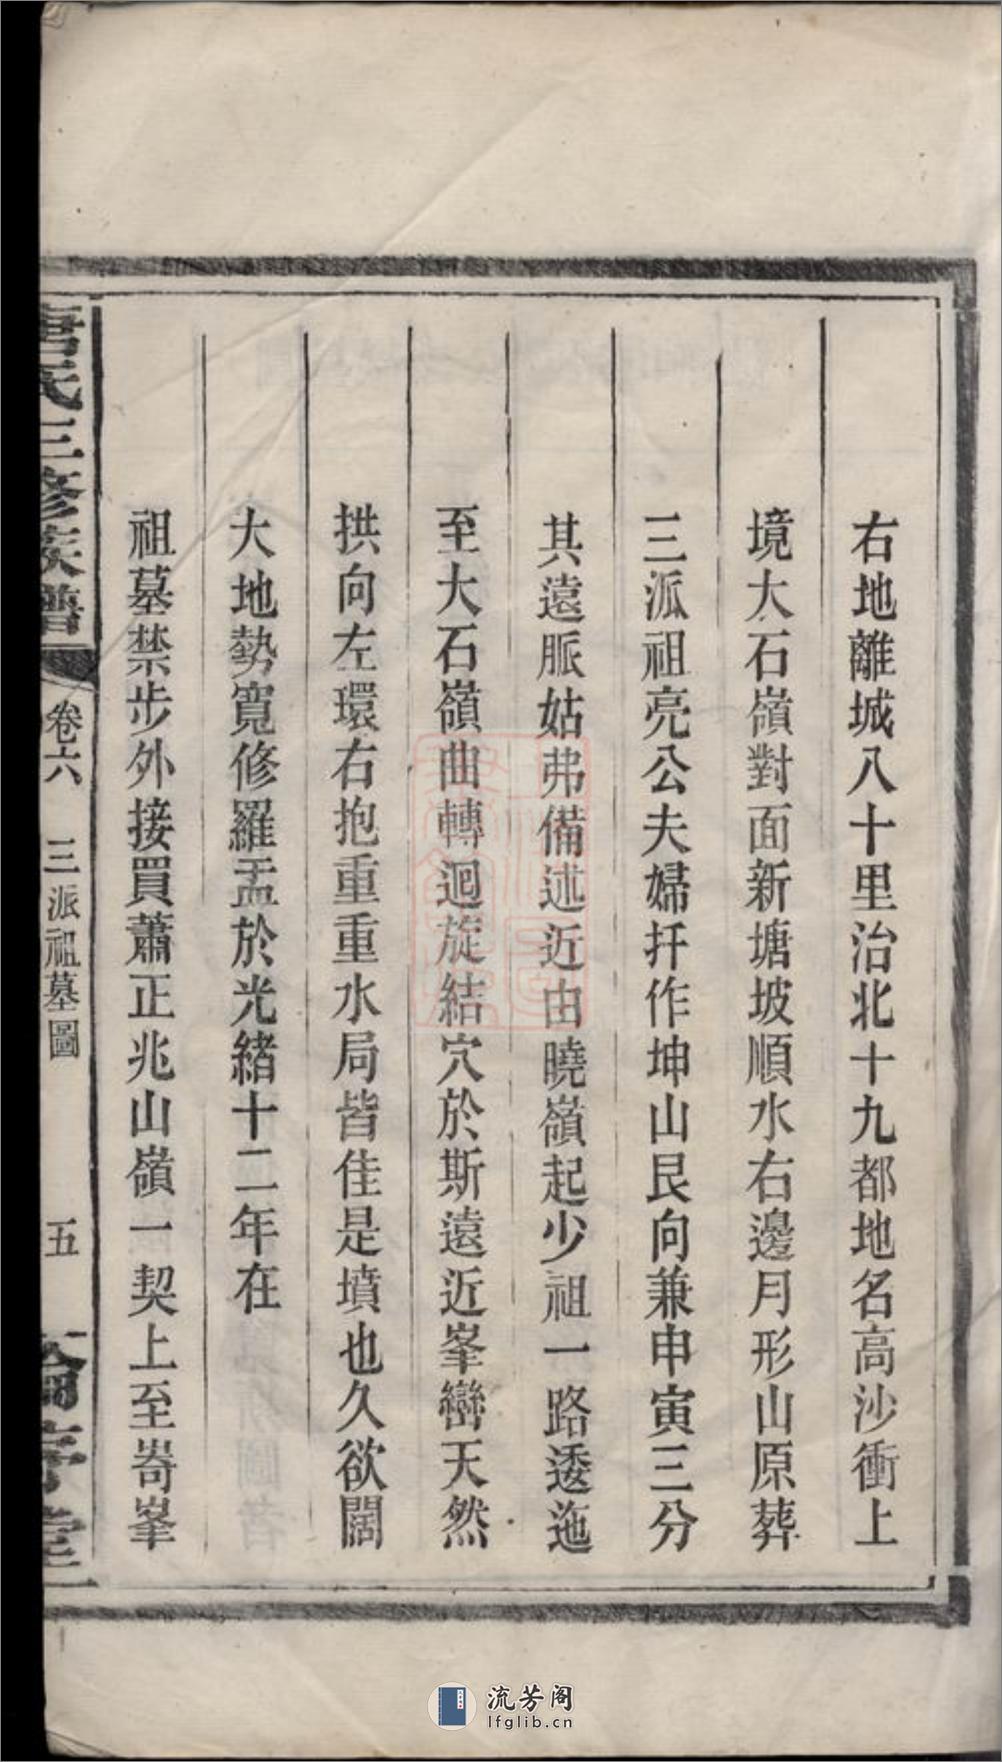 右地離城八十里治北十九都地名高沙衝上
境大石嶺對面新塘坡順水右邊月形山原葬
三派祖亮公夫婦扦作坤山艮向兼申寅三分
其遠脈姑弗備述近由曉嶺起少祖一路逶迤
至大石嶺曲轉迴旋結穴於斯遠近峯巒天然
拱向左環右抱重重水局皆佳是墳也久欲闊
大地勢寬修羅盂於光緒十二年在
祖墓禁步外接買蕭正兆山嶺一契上至峕峯
唐氏三修族譜
卷六
三派祖墓圖
五
倫序堂
流芳阁
lfglib.cn